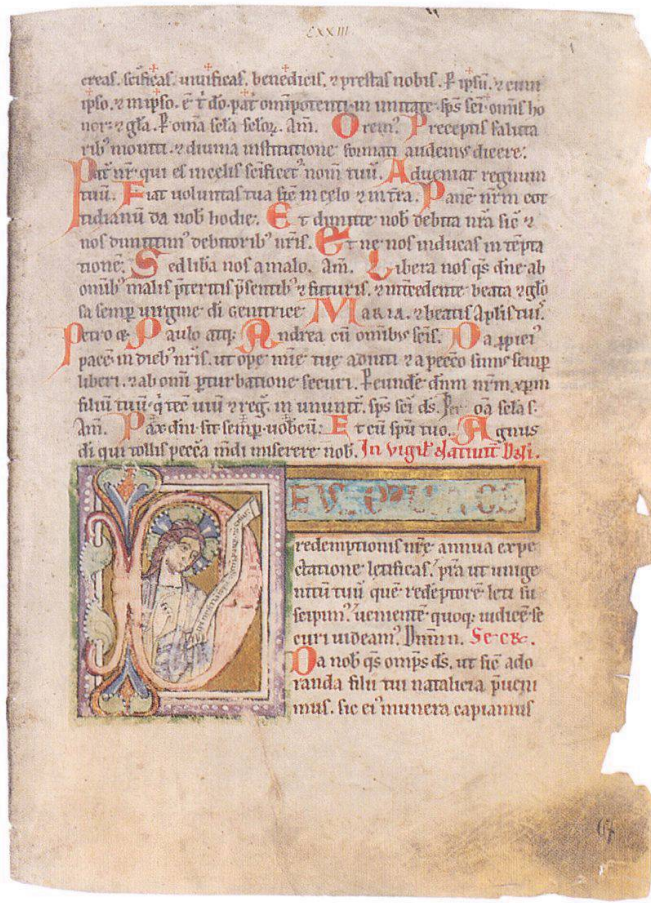 CXXIII
creas. scificas. uiuificas. benedicis. ⁊ prestas nobis. P ipsu. ⁊ cum
ipso. ⁊ in ipso. e t do. pat omipotenti in unitate sps sci. omis ho
nor. ⁊ gla. P omia scla sclor. Am. Orem'. Preceptis saluta
rib' moniti. ⁊ diuina institutione formati audemus dicere.
Pat nr qui es in celis scificet' nom tuu. Adueniat regnum
tuu. Fiat uoluntas tua sic in celo ⁊ in tra. Pane nrm cot
tidianu da nob hodie. Et dimitte nob debita nra sic ⁊
nos dimittim' debitorib' nris. Et ne nos inducas in tepta
tione. Sed liba nos a malo. Am. Libera nos qs dne ab
omib' malis pteritis psentib' ⁊ futuris. ⁊ intcedente beata ⁊ glo
sa semp uirgine di genitrice MARIA. ⁊ beatis Aplis tuis.
Petro &. Paulo atq; Andrea cu omibus scis. Da ppici'
pace in dieb' nris. ut ope mie tue adiuti ⁊ a pecco simus semp
liberi. ⁊ ab omi pturbatione securi. P eunde dnm nrm xpm
filiu tuu. q tec uiu ⁊ reg. in ununit. sps sci ds. Per oa scla s.
Am. Pax dni sit semp uobcu. Et cu spu tuo. Agnus
di qui tollis pecca mdi miserere nob. In vigil natiuit Dni.
DEVS QVI NOS
redemptionis nre annua expe
ctatione letificas. pra ut unige
nitu tuu que redeptore leti su
scipim'. uemente quoq; iudice se
curi uideam'. Dnm n. Secr.
Da nob qs omps ds. ut sic ado
randa filii tui natalicia pueni
mus. sic ei' munera capiamus
67